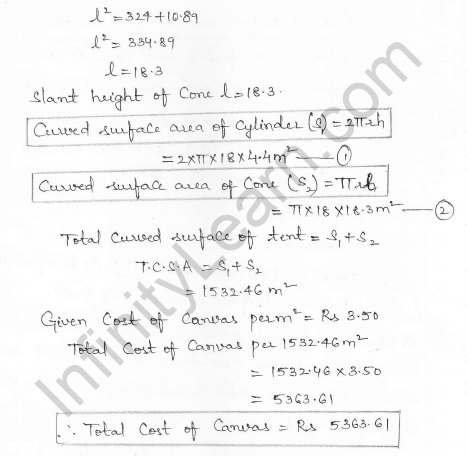 l² = 324 + 10.89
l² = 334.89
l = 18.3
Slant height of Cone l = 18.3.
Curved surface area of Cylinder (S₁) = 2πrh
= 2×π×18×4.4m² — ①
Curved surface area of Cone (S₂) = πrl
= π×18×18.3m² — ②
Total Curved surface of tent = S₁ + S₂
T.C.S.A = S₁ + S₂
= 1532.46 m²
Given Cost of Canvas per m² = Rs 3.50
Total Cost of Canvas per 1532.46m²
= 1532.46 × 3.50
= 5363.61
∴ Total Cost of Canvas = Rs 5363.61
InfinityLearn.com